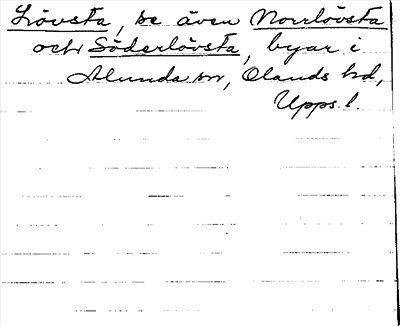 Lövsta, se även Norrlövsta
och Söderlövsta, byar i
Alunda sn, Olands hd,
Upps. l.